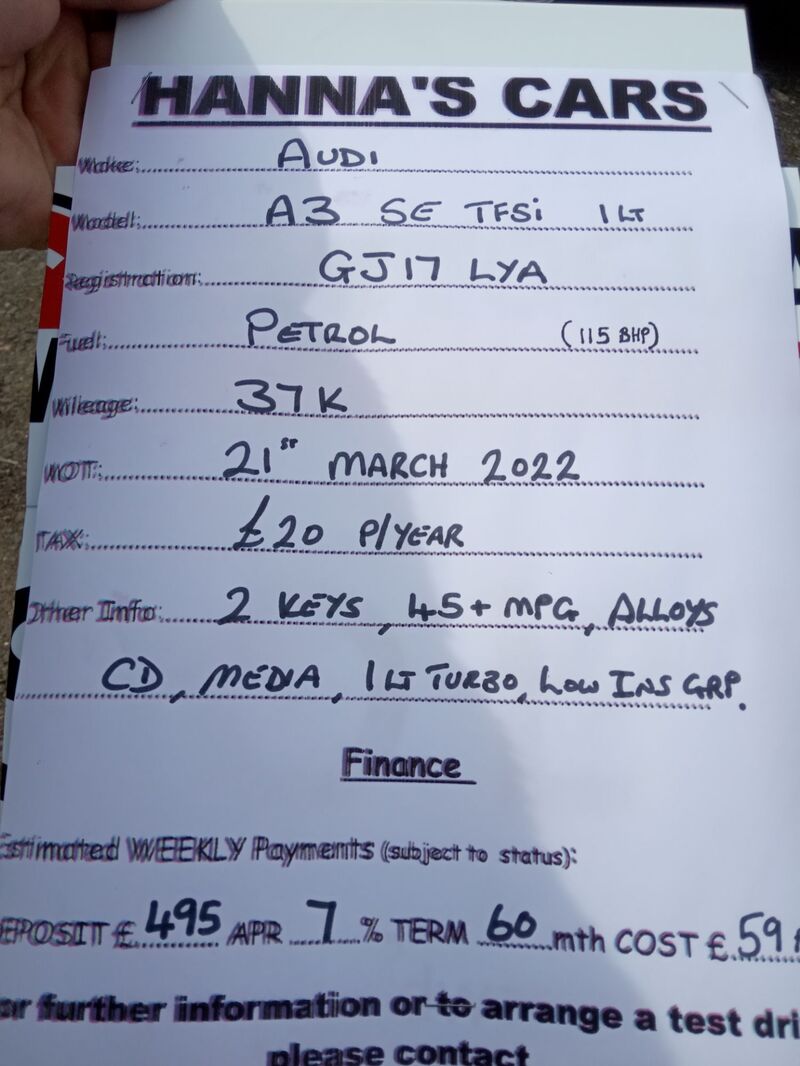 HANNA'S CARS
Make: AUDI
Model: A3 SE TFSi 1 LT
Registration: GJ17 LYA
Fuel: PETROL (115 BHP)
Mileage: 37K
MOT: 21ST MARCH 2022
TAX: £20 P/YEAR
Other Info: 2 KEYS, 45+ MPG, ALLOYS
CD, MEDIA, 1 LT TURBO, LOW INS GRP.
Finance
Estimated WEEKLY Payments (subject to status):
DEPOSIT £ 495 APR 7 % TERM 60 mth COST £ 59
or further information or to arrange a test dri
please contact